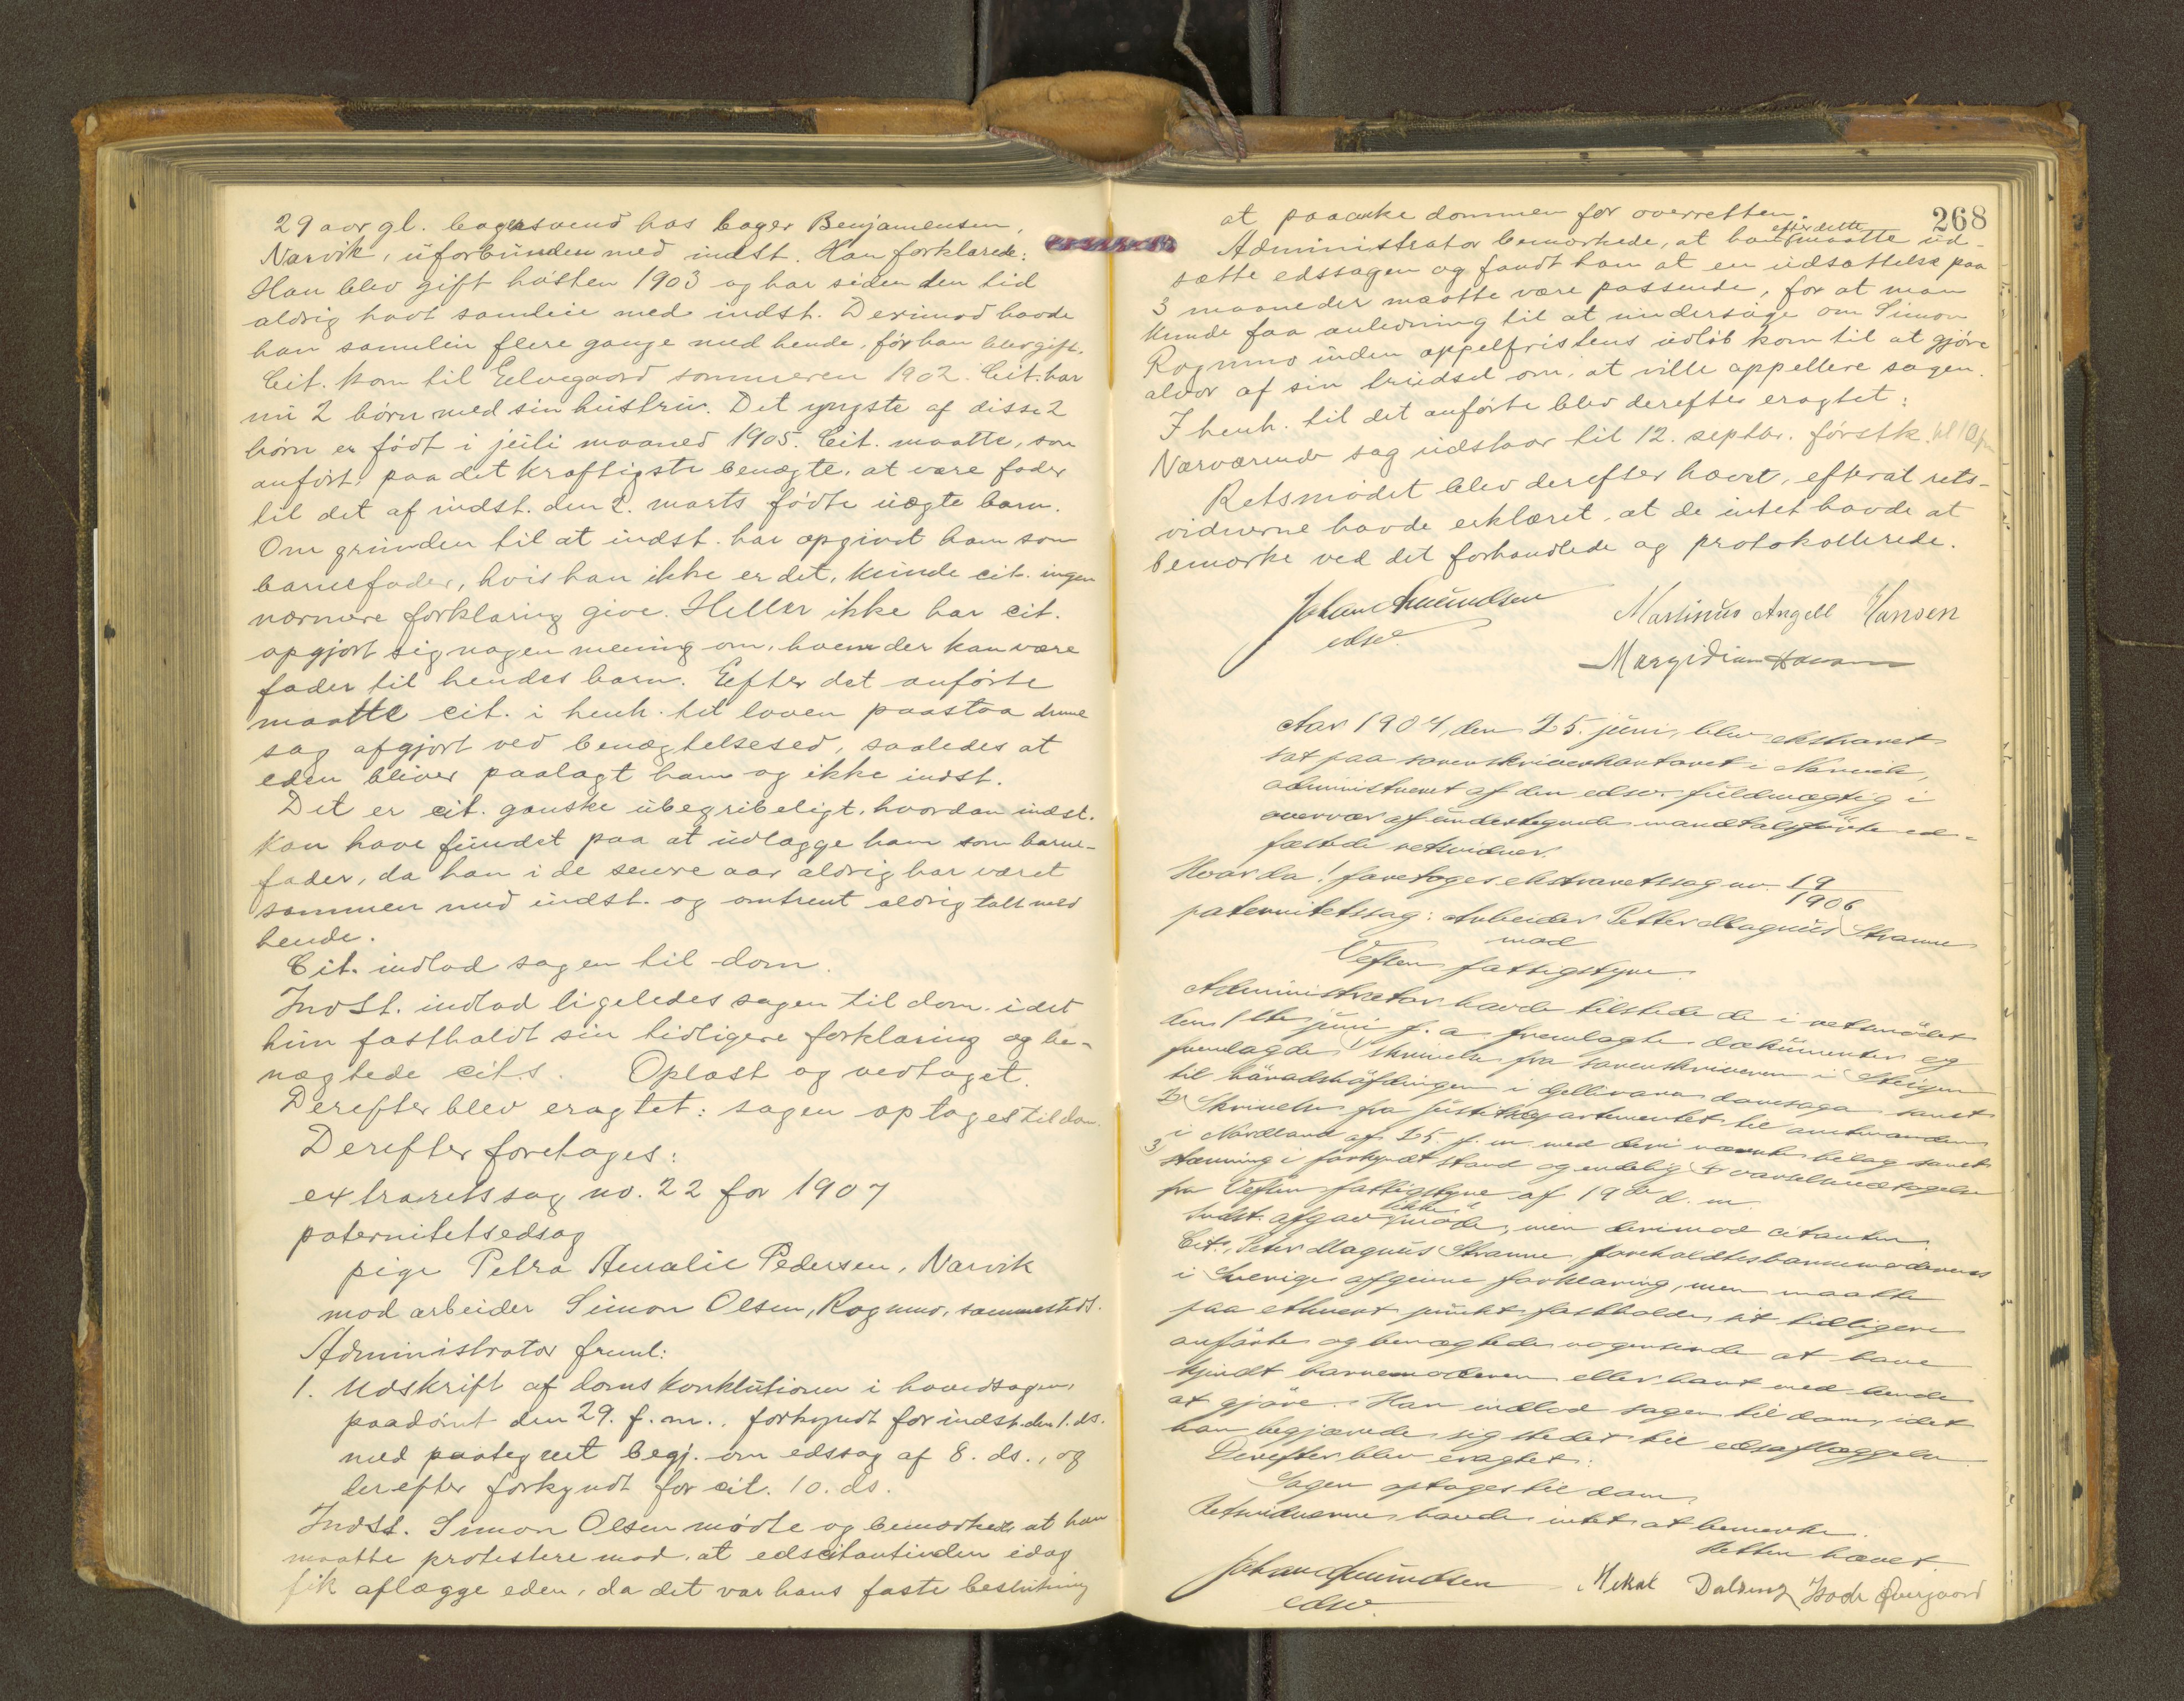 29 aar gl. bagersvend hos bager Benjaminsen,
Narvik, uforbunden med indst. Han forklarede:
Han blev gift høsten 1903 og har siden den tid
aldrig havt samleie med indst. Derimod havde
han samleie flere gange med hende, før han blev gift.
Cit. kom til Eelvegaard sommeren 1902. Cit. har
nu 2 børn med sin hustru. Det yngste af disse 2
børn er født i juli maaned 1905. Cit. maatte, som
anført, paa det kraftigste benægte, at være fader
til det af indst. den 2. marts fødte uægte barn.
Om grunden til at indst. har opgivet ham som
barnefader, hvis han ikke er det, kunde cit. ingen
nærmere forklaring give. Heller ikke har cit.
opgjort sig nogen mening om, hvem der kan være
fader til hendes barn. Efter det anførte
maatte cit. i henh. til loven paastaa denne
sag afgjort ved benægtelsesed, saaledes at
eden bliver paalagt ham og ikke indst.
Det er cit. ganske ubegribeligt, hvordan indst.
kan have fundet paa at udlægge ham som barne-
fader, da han i de senere aar aldrig har været
sammen med indst. og omtrent aldrig talt med
hende.
Cit. indlod sagen til dom.
Indst. indlod ligeledes sagen til dom, idet
hun fastholdt sin tidligere forklaring og be-
nægtede cit.s. Oplæst og vedtaget.
Derefter blev eragtet: sagen optages til dom.
Derefter foretoges:
extraretssag no. 22 for 1907
paternitetsedsag
pige Petra Amalie Pedersen, Narvik
mod arbeider Simon Olsen, Rogmo, sammesteds.
Administrator freml:
1. Udskrift af domskonklutionen i hovedsagen,
paadømt den 29. f.m., forkyndt for indst. den 1. ds.
med paategnet begj. om edssag af 8. ds., og
derefter forkyndt for cit. 10. ds.
Indst. Simon Olsen mødte og bemærkede at han
maatte protestere mod, at edscitantinden idag
fik aflægge eden, da det var hans faste beslutning
268
at paaanke dommen for overretten.
efter dette
Administrator bemærkede, at han maatte ud-
sætte edssagen og fandt han at en udsættelse paa
3 maaneder maatte være passende, for at man
kunde faa anledning til at undersøge om Simon
Rogmo inden appelfristens udløb kom til at gjøre
alvor af sin trudsel om, at ville appellere sagen.
I henh. til det anførte blev derefter eragtet:
Nærværende sag udstaar til 12. septbr. førstk. kl 10 fm
Retsmødet blev derefter hævet, efterat rets-
vidnerne havde erklæret, at de intet havde at
bemærke ved det forhandlede og protokollerede.
Johan Amundsen
edsv.
Martinus Angell Hansen
Aar 1907, den 25. juni, blev ekstraret
sat paa sorenskriverkontoret i Narvik,
administreret af den edsv. fuldmægtig i
overvær af undertegnede mandtalsførte ed-
fæstede retsvidner.
Hvorda! foretoges ekstraretssag nr. 19/1906
paternitetssag: Arbeider Petter Magnus Stranne
mod
Vefsen fattigstyre
Administrator havde tilstede de i retsmødet
den 1ste juni f.a. fremlagte dokumenter og
fremlagde 1) skrivelse fra sorenskriveren i Steigen
til häradshöfdingen i Gellivara domsaga samt
2) Skrivelse fra justitsdepartementet til amtmanden
i Nordland af 25. f.m. med deri nævnte bilag samt
3) stævning i forkyndt stand og endelig 4) varselsvedtagelse
fra Vefsen fattigstyre af 19de d.m.
ikke
Indst. afgav møde, men derimod citanten.
Cit., Peter Magnus Stranne foreholdtes barnemoderens
i Sverige afgivne forklaring, men maatte
paa ethvert punkt fastholde sit tidligere
anførte og benægtede nogensinde at have
kjendt barnemoderen eller havt med hende
at gjøre. Han indlod sagen til dom, idet
han begjærede sig stedet til edsaflæggelse.
Derefter blev eragtet:
Sagen optages til dom.
Retsvidnerne havde intet at bemærke.
Retten hævet.
Johan Amundsen
edsv.
Mekal Dalseng